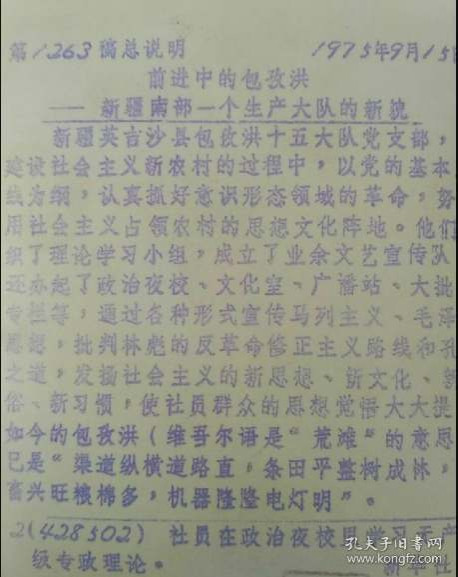 第1263稿总说明 1975年9月15
前进中的包孜洪
—— 新疆南部一个生产大队的新貌
新疆英吉沙县包孜洪十五大队党支部，
建设社会主义新农村的过程中，以党的基本
线为纲，认真抓好意识形态领域的革命，努
用社会主义占领农村的思想文化阵地。他们
织了理论学习小组，成立了业余文艺宣传队
还办起了政治夜校、文化室、广播站、大批
专栏等，通过各种形式宣传马列主义、毛泽
思想，批判林彪的反革命修正主义路线和孔
之道，发扬社会主义的新思想、新文化、新
俗、新习惯，使社员群众的思想觉悟大大提
如今的包孜洪（维吾尔语是“荒滩”的意思
已是“渠道纵横道路直，条田平整树成林，
畜兴旺粮棉多，机器隆隆电灯明”。
2(428502) 社员在政治夜校里学习无产
级专政理论。
孔夫子旧书网
book.kongfz.com